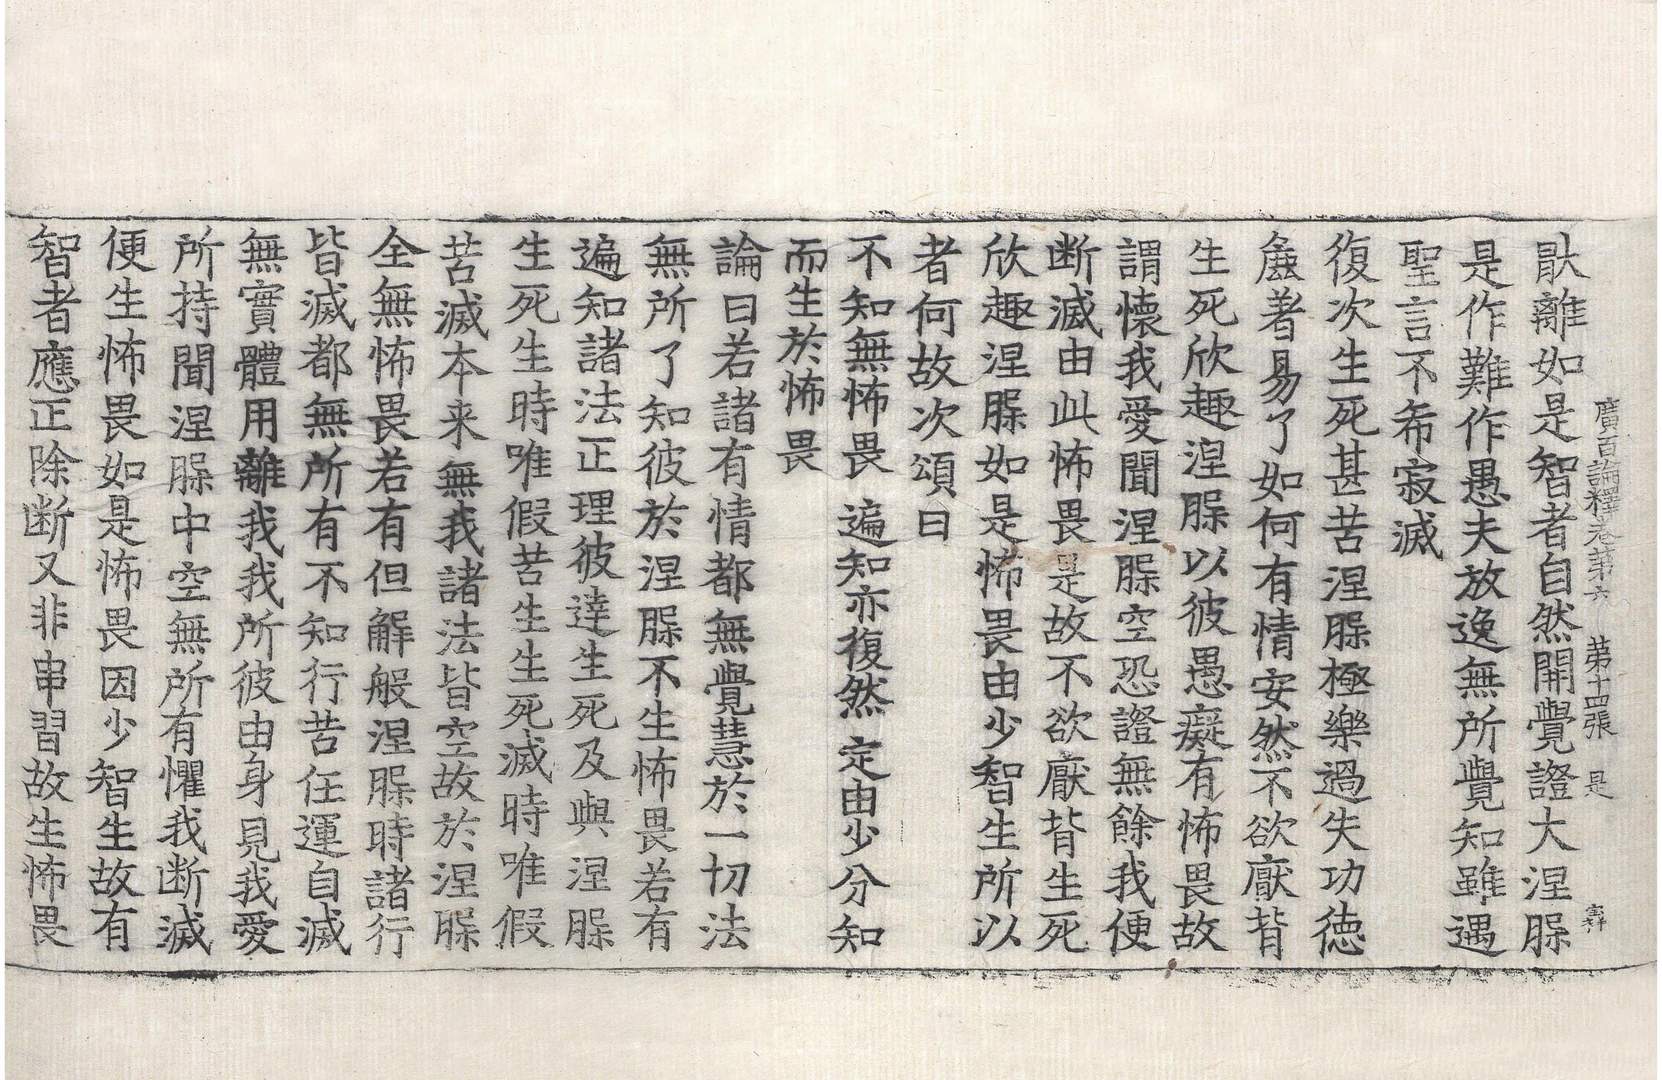 廣百論釋卷第六 第十四張 是
猒離如是智者自然開覺證大涅槃
是作難作愚夫放逸無所覺知雖遇
聖言不希寂滅
復次生死甚苦涅槃極樂過失功德
麁著易了如何有情安然不欲厭背
生死欣趣涅槃以彼愚癡有怖畏故
謂懷我愛聞涅槃空恐證無餘我便
断滅由此怖畏是故不欲厭背生死
欣趣涅槃如是怖畏由少智生所以
者何故次頌曰
不知無怖畏 遍知亦復然 定由少分知
而生於怖畏
論曰若諸有情都無覺慧於一切法
無所了知彼於涅槃不生怖畏若有
遍知諸法正理彼達生死及與涅槃
生死生時唯假苦生生死滅時唯假
苦滅本来無我諸法皆空故於涅槃
全無怖畏若有但解般涅槃時諸行
皆滅都無所有不知行苦任運自滅
無實體用離我我所彼由身見我愛
所持聞涅槃中空無所有懼我断滅
便生怖畏如是怖畏因少智生故有
智者應正除断又非串習故生怖畏